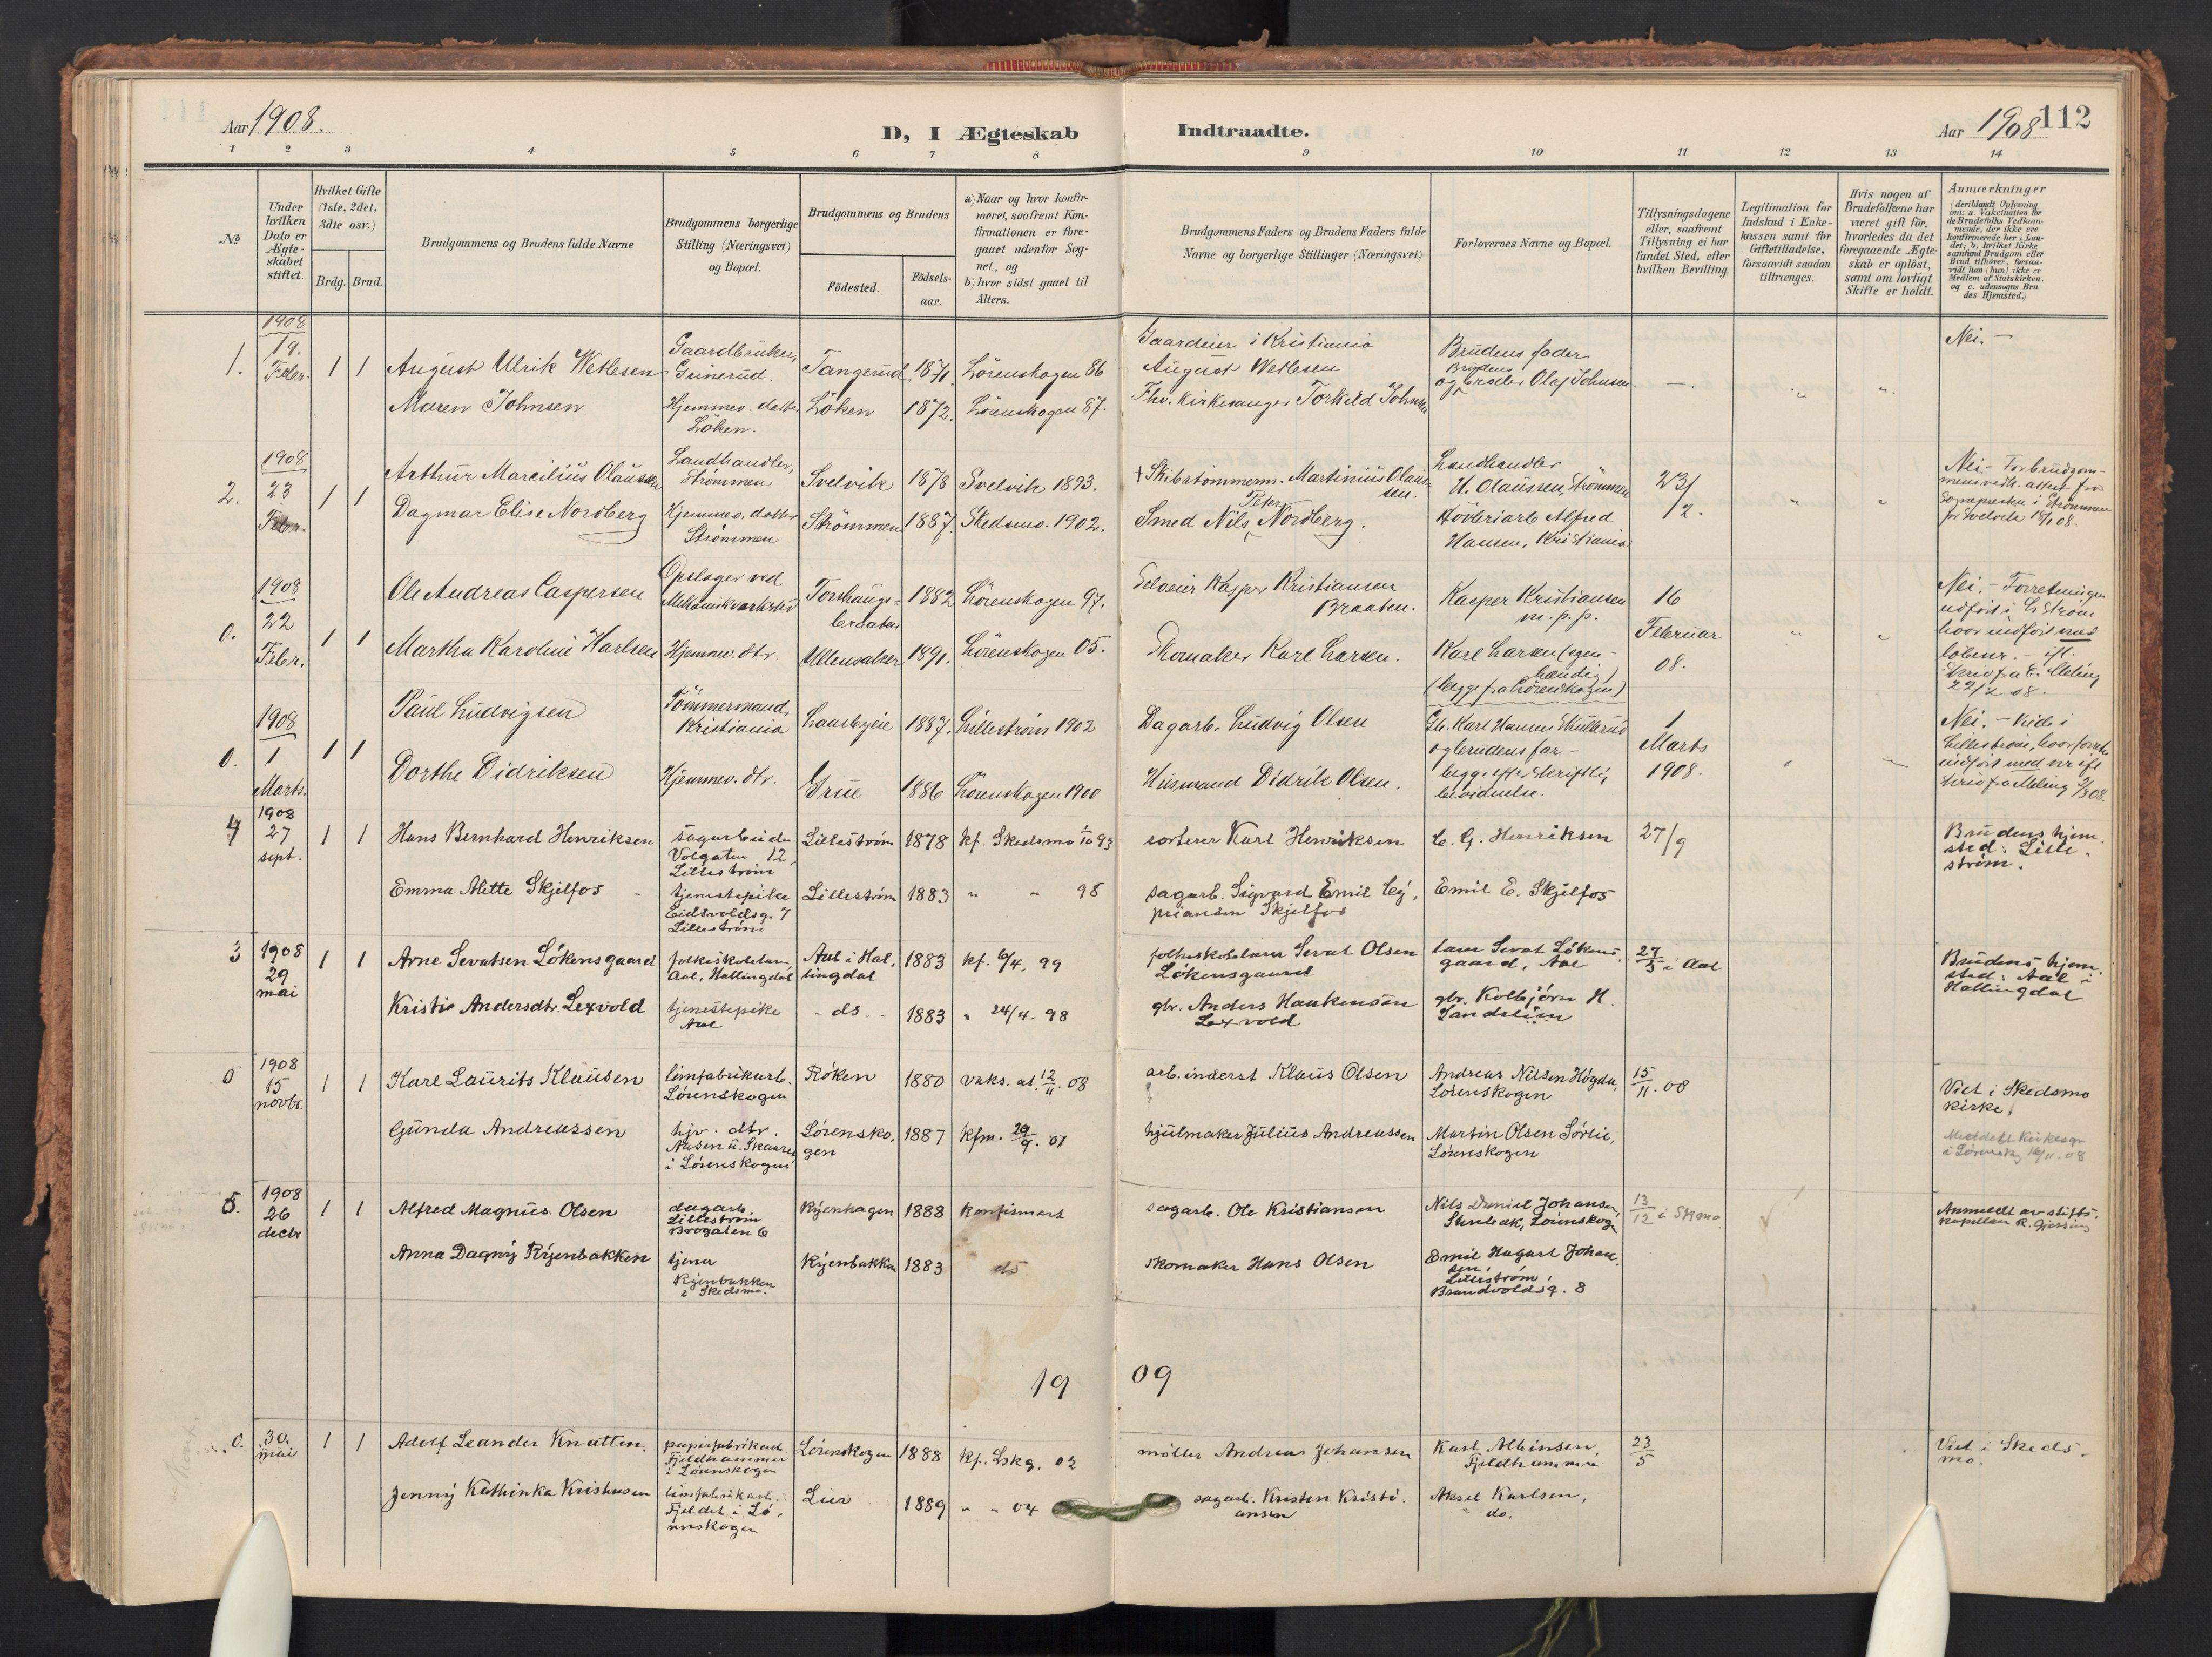 Aar 1908.
D, I Ægteskab Indtraadte.
Aar 1908 112
1 2 3 4 5 6 7 8 9 10 11 12 13 14
No
Under hvilken Dato er Ægteskabet stiftet.
Hvilket Gifte (1ste, 2det, 3die osv.)
Brdg. Brud.
Brudgommens og Brudens fulde Navne
Brudgommens borgerlige Stilling (Næringsvei) og Bopæl.
Brudgommens og Brudens
Fødested.
Fødsels-aar.
a) Naar og hvor konfirmeret, saafremt Konfirmationen er foregaaet udenfor Sognet, og
b) hvor sidst gaaet til Alters.
Brudgommens Faders og Brudens Faders fulde Navne og borgerlige Stillinger (Næringsvei)
Forlovernes Navne og Bopæl.
Tillysningsdagene eller, saafremt Tillysning ei har fundet Sted, efter hvilken Bevilling.
Legitimation for Indskud i Enkekassen samt for Giftetilladelse, forsaavidt saadan tiltrænges.
Hvis nogen af Brudefolkene har været gift før, hvorledes da det foregaaende Ægteskab er opløst, samt om lovligt Skifte er holdt.
Anmærkninger (deriblandt Oplysning om: a. Vakcination for de Brudefolks Vedkommende, der ikke ere konfirmerede her i Landet; b. hvilket Kirkesamfund Brudgom eller Brud tilhører, forsaavidt han (hun) ikke er Medlem af Statskirken, og c. udensogns Brudes Hjemsted.)
1. 1908 19. Febr. 1 1 August Ulrik Wetlesen Gaardbruker, Grinerud. Tangerud 1871. Lörenskogen 86 Gaardeier i Kristiania August Wetlesen Brudens fader og Brudens broder Olaf Johnsen. — Nei. —
Maren Johnsen Hjemmev. datter Löken. Löken 1872. Lörenskogen 87. Fhv. kirkesanger Torkild Johnsen
2. 1908 23 Febr. 1 1 Arthur Marcilius Olaussen Landhandler, Strømmen Svelvik 1878 Svelvik 1893. + Skibstømmerm. Martinius Olaussen. Landhandler H. Olaussen, Strømmen 23/2. Nei. — For brudgommens vedk. attest fra Sognepresten i Strømmen for Svelvik 18/1 08.
Dagmar Elise Nordberg Hjemmev. datter Strømmen Strömmen 1887. Skedsmo. 1902. Smed Nils Peter Nordberg. Høvleriarb Alfred Hansen, Kristiania
0. 1908 22 Febr. 1 1 Ole Andreas Caspersen Opslager ved Mekanisk værksted Torshaugs=braaten 1882 Lörenskogen 97. Selveier Kasper Kristiansen Braaten. Kasper Kristiansen m. p. p. 16 Februar 08. Nei. — Forretningen udført i Lstrøm hvor indført med löbenr. — ifl. skriv fra E. Meling 22/2 08.
Martha Karoline Karlsen Hjemmev. dtr. Ullensaker 1891. Lörenskogen 05. Skomaker Karl Larsen. Karl Larsen (egenhændig) (begge fra Lörenskogen)
0. 1908 1 Marts. 1 1 Paul Ludvigsen Tömmermand, Kristiania Laasbyeie 1887. Lilleström 1902 Dagarb. Ludvig Olsen Gb. Karl Hansen Skullerud og brudens far — begge efter skriftlig bevidnelse. 1 Marts 1908. Nei. — Viede i Lilleström, hvor forretn. indført med nr ifl skriv fra Meling 2/3 08.
Dorthe Didriksen Hjemmev. dtr. Grue 1886 Lörenskogen 1900 Husmand Didrik Olsen.
4 1908 27 sept. 1 1 Hans Bernhard Henriksen sagarbeider Volgaten 12, Lilleström Lilleström 1878 kf. Skedsmo 1/10 93 sorterer Karl Henriksen C. G. Henriksen 27/9 Brudens hjemsted: Lilleström.
Emma Alette Skjelfos tjenestepike Eidsvoldsg. 7 Lilleström Lillestrøm 1883 " " 98 sagarb. Sigvard Emil Cypriansen Skjelfos Emil E. Skjelfos
3 1908 29 mai 1 1 Arne Sevatsen Lökensgaard folkeskolelærer Aal, Hallingdal Aal i Hallingdal 1883 kf. 6/4. 99 folkeskolelærer Sevat Olsen Lökensgaard lærer Sevat Lökensgaard, Aal 27/5 i Aal Brudens hjemsted: Aal i Hallingdal
Kristie Andersdtr. Lexvold tjenestepike Aal - ds. - 1883 " 24/4. 98 gbr. Anders Haakensen Lexvold gbr. Kolbjörn H. Sandslien
0 1908 15 novbr. 1 1 Karl Laurits Klausen limfabrikarb. Lørenskogen Røken 1880 vaks. at. 12/11. 08 arb. inderst Klaus Olsen Andreas Nilsen Høgda, Lørenskogen 15/11. 08 Viet i Skedsmo kirke.
Gunda Andreassen hjv. dtr. Aasen u. Skaarer i Lørenskogen Lørenskogen 1887 kfm. 29/9. 01 hjulmaker Julius Andreassen Martin Olsen Sørlie, Lørenskogen Meddelt kirkesgr. i Lørensk. 16/11. 08
5. 1908 26 decbr 1 1 Alfred Magnus Olsen dagarb. Lilleström Brogaten 6 Ryenhagen 1888 konfirmert sagarb. Ole Kristiansen Nils Daniel Johansen, Stenbæk, Lörenskogn 13/12 i Skmo. Anmeldt av stifts. kapellan R. Gjessing
Anna Dagny Ryenbakken tjener Ryenbakken i Skedsmo. Ryenbakken 1883 ds skomaker Hans Olsen Emil Hagart Johansen, Lilleström, Brandvoldsg. 8
19 09
0. 30. mai 1 1 Adolf Leander Knatten. papirfabrikarb Fjeldhammer i Lörenskogen Lörenskogen 1888 kf. Lskg. 02 møller Andreas Johansen Karl Albinsen, Fjeldhammer 23/5 Viet i Skedsmo.
Jenny Kathinka Kristensen limfabrikarb. Fjeldet i Lörenskogen Lier 1889 " " 04 sagarb. Kristen Kristiansen Aksel Karlsen, do.